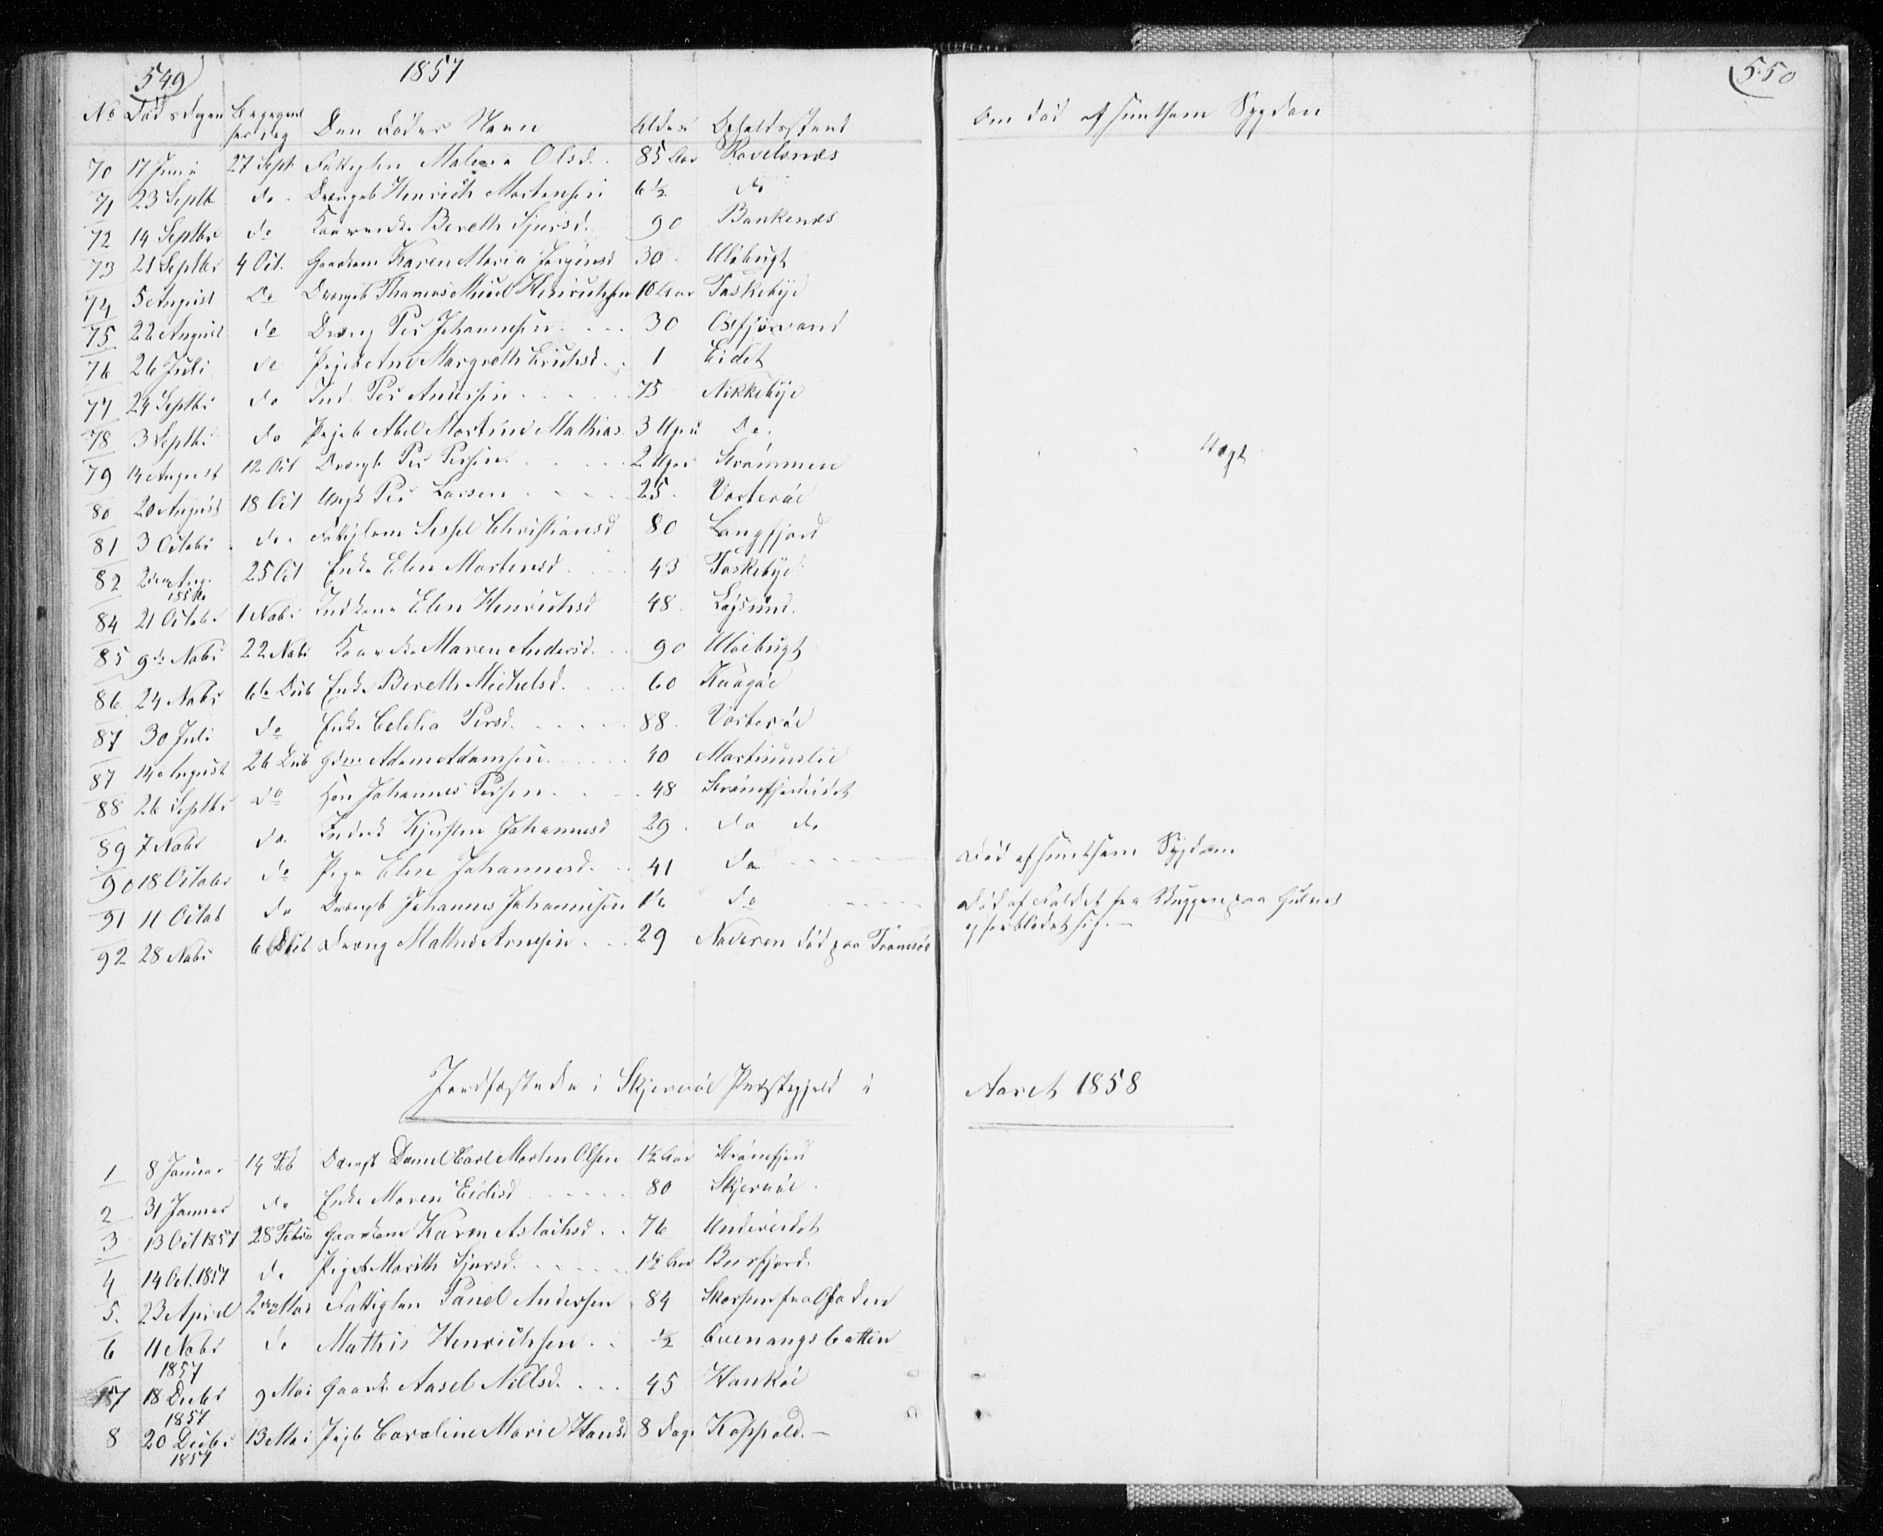 549
1857
550
No Dødsdagen Begravelsesdag Den Dødes Navn Alder Opholdssted Om død af smitsom Sygdom
70 17 Juni 27 Sept Fattiglem Malena Olsd. 85 Aar Ravelsnæs
71 23 Septbr do Drengeb Henrich Mortensen 6 1/2 do
72 14 Septbr do Kaarenke Bereth Sjursd. 90 Bankenæs
73 21 Septbr 4 Oct. Gaardkone Karen Maria Jørgensd 30 Uløbugt
74 5 August Do Drengeb Thomas Henrichsen 10 Aar Taskebye
75 22 August do Dreng Per Johannesen 30
76 26 Juli do Pigeb Ane Margreth Erichsd. 1 Eidet
77 24 Septbr do Ind. Per Andersen 75 Nikkebye
78 3 Septbr do Pigeb Abel Martine Mathias 3 Uger Do.
79 14 August 12 Oct Drengb Per Persen 2 Uger Strømmen
80 20 August 18 Oct Ungk Per Larsen 25 Vorterøe
81 3 Octobr do Fattiglem Sissel Christiansd 80 Langfjord
82 2den Aug. 25 Oct Enke Elen Mortensd 43 Taskebye
84 21 Octobr 1 Nobr Indkone Elen Henrichsd 48 Løgsund.
85 9de Nobr 22 Nobr Kaarenke Maren Andersd. 90 Uløibugt
86 24 Nobr 6te Decb Enke Bereth Michelsd. 60 Kaagøe
87 30 Juli do Enke Celelia Persd. 88 Vorterøe
87 14 August 26 Adam Adamsen 40
88 26 Septbr do Johannes Persen 48 Strømfjordeidet
89 7 Nobr do Kjersten Johannesd 29 do do
90 18 Octobr do Pige Elen Johannesd. 41 do Død af smitsom Sygdom
91 11 Octob do Drengb Johannes Johannesen do Død af Faldet fra paa
og forblødet sig.
92 28 Nobr 6 Decb Dreng Mathis Arnesen 29 død paa Tromsøe
Jordfæstede i Skjervøe Præstegjeld i Aaret 1858
1 8 Januar 14 Feb Drengb Daniel Carl Morten Olsen 1 1/2 Aar Strømfjord
2 31 Januar do Enke Maren Eidisd 80 Skjervøe.
3 13 Oct 1857 28 Febr Gaardkone Karen Aslachsd. 76 Undereidet
4 14 Oct. 1857 do Pigeb Marith Sjursd. 1 1/2 Aar Burfjord.
5. 23 April 2den Mai Fattiglem Panel Andersen 84
6 11 Nobr
1857 do Mathis Henrichsen 1/2 Qvenangsbotten
7 18 Decbr
1857 9 Mai Aasel Nilsd. 45 Haukøe
8 20 Decbr
1857 13 Mai Pigb Caroline Marie Hansd 8 Dage Koppald.